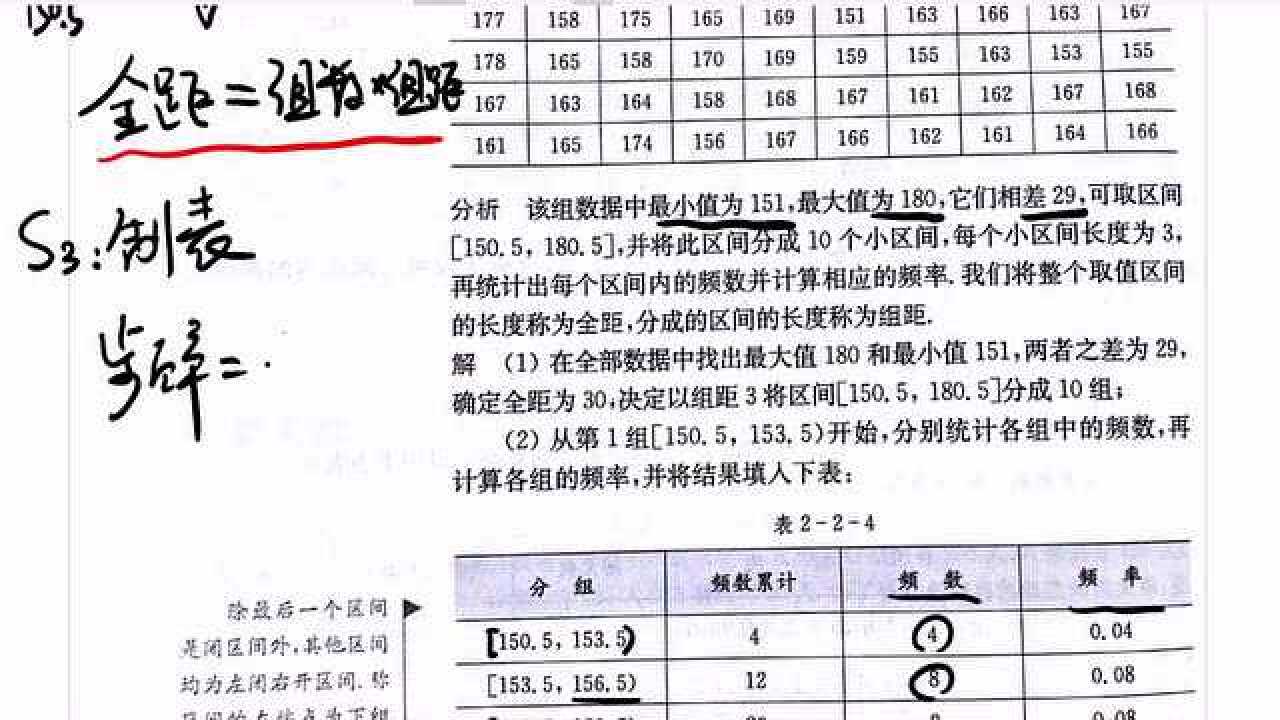 177 158 175 165 169 151 163 166 163 167
全距=组数×组距
178 165 158 170 169 159 155 163 153 155
167 163 164 158 168 167 161 162 167 168
161 165 174 156 167 166 162 161 164 166
S3:制表
分析 该组数据中最小值为 151,最大值为 180,它们相差 29,可取区间
[150.5, 180.5],并将此区间分成 10 个小区间,每个小区间长度为 3,
再统计出每个区间内的频数并计算相应的频率.我们将整个取值区间
的长度称为全距,分成的区间的长度称为组距.
解 (1) 在全部数据中找出最大值 180 和最小值 151,两者之差为 29,
确定全距为 30,决定以组距 3 将区间[150.5, 180.5]分成 10 组;
(2) 从第 1 组[150.5, 153.5)开始,分别统计各组中的频数,再
计算各组的频率,并将结果填入下表:
表 2-2-4
分 组 频数累计 频 数 频 率
[150.5, 153.5) 4 4 0.04
[153.5, 156.5) 12 8 0.08
除最后一个区间
是闭区间外,其他区间
均为左闭右开区间.称